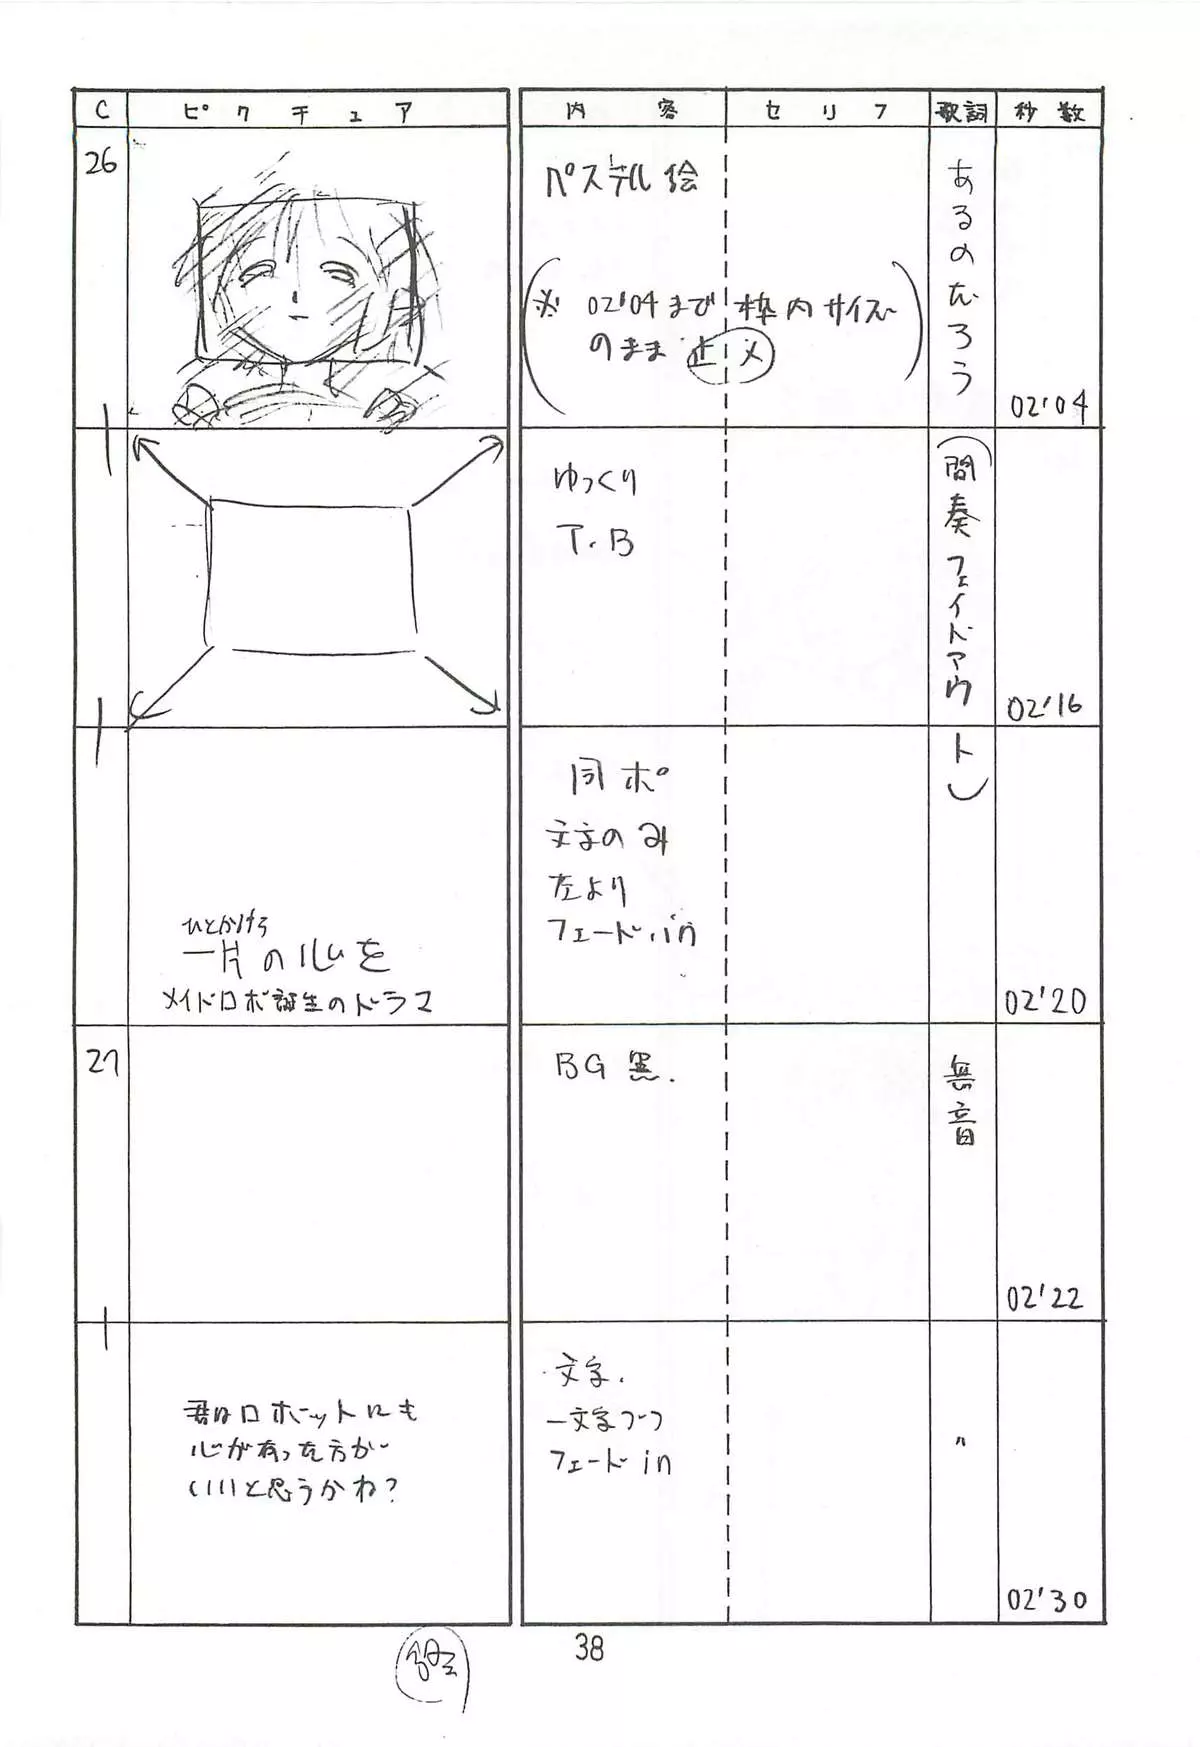 C ピクチュア 内容 セリフ 歌詞 秒数
26
パステル絵
(※ 02'04まで枠内サイズ
のまま 止メ)
あるのだろう
02'04
ゆっくり
T.B
(間奏フェイドアウト)
02'16
ひとかけら
一片の心を
メイドロボ誕生のドラマ
同ポ
文字のみ
左より
フェード.in
02'20
27
BG 黒.
無音
02'22
君はロボットにも
心が有った方が
いいと思うかね?
文字.
一文字づつ
フェード in
〃
02'30
38